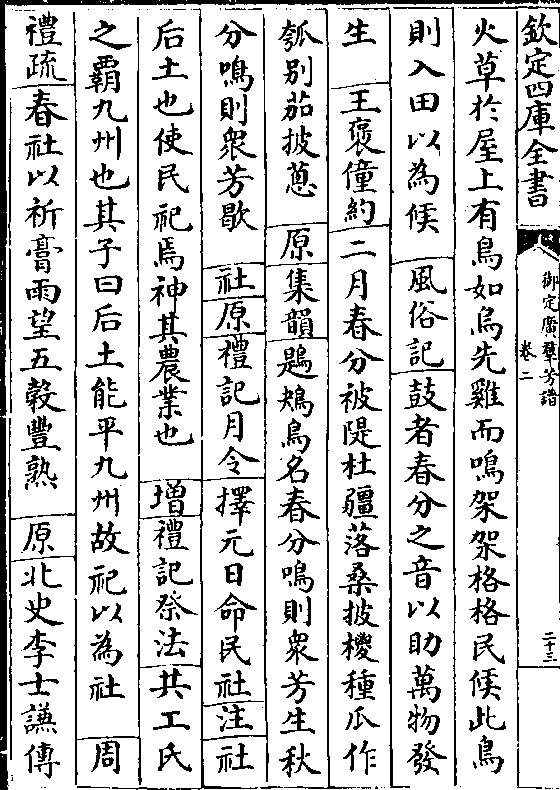 欽定四庫全書
御定廣羣芳譜
卷二
二十三
火草於屋上有鳥如烏先雞而鳴架架格格民候此鳥
則入田以為候 風俗記鼓者春分之音以助萬物發
生 王褒僮約二月春分被隄杜疆落桑披椶種瓜作
瓠别茄披蔥 原集韻鶗鴂鳥名春分鳴則衆芳生秋
分鳴則衆芳歇 社原禮記月令擇元日命民社注社
后土也使民祀焉神其農業也 增禮記祭法共工氏
之霸九州也其子曰后土能平九州故祀以為社 周
禮疏春社以祈膏雨望五穀豐熟 原北史李士謙傳